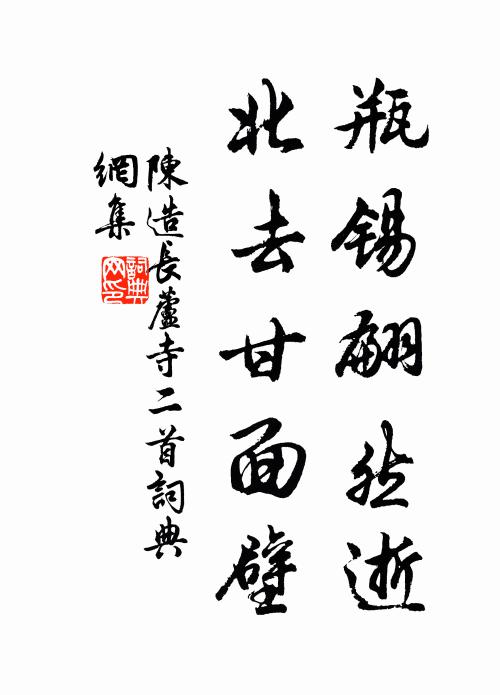 瓶錫翩然逝
北去甘面壁
陳造長蘆寺二首詞典
網集
詞典
網印